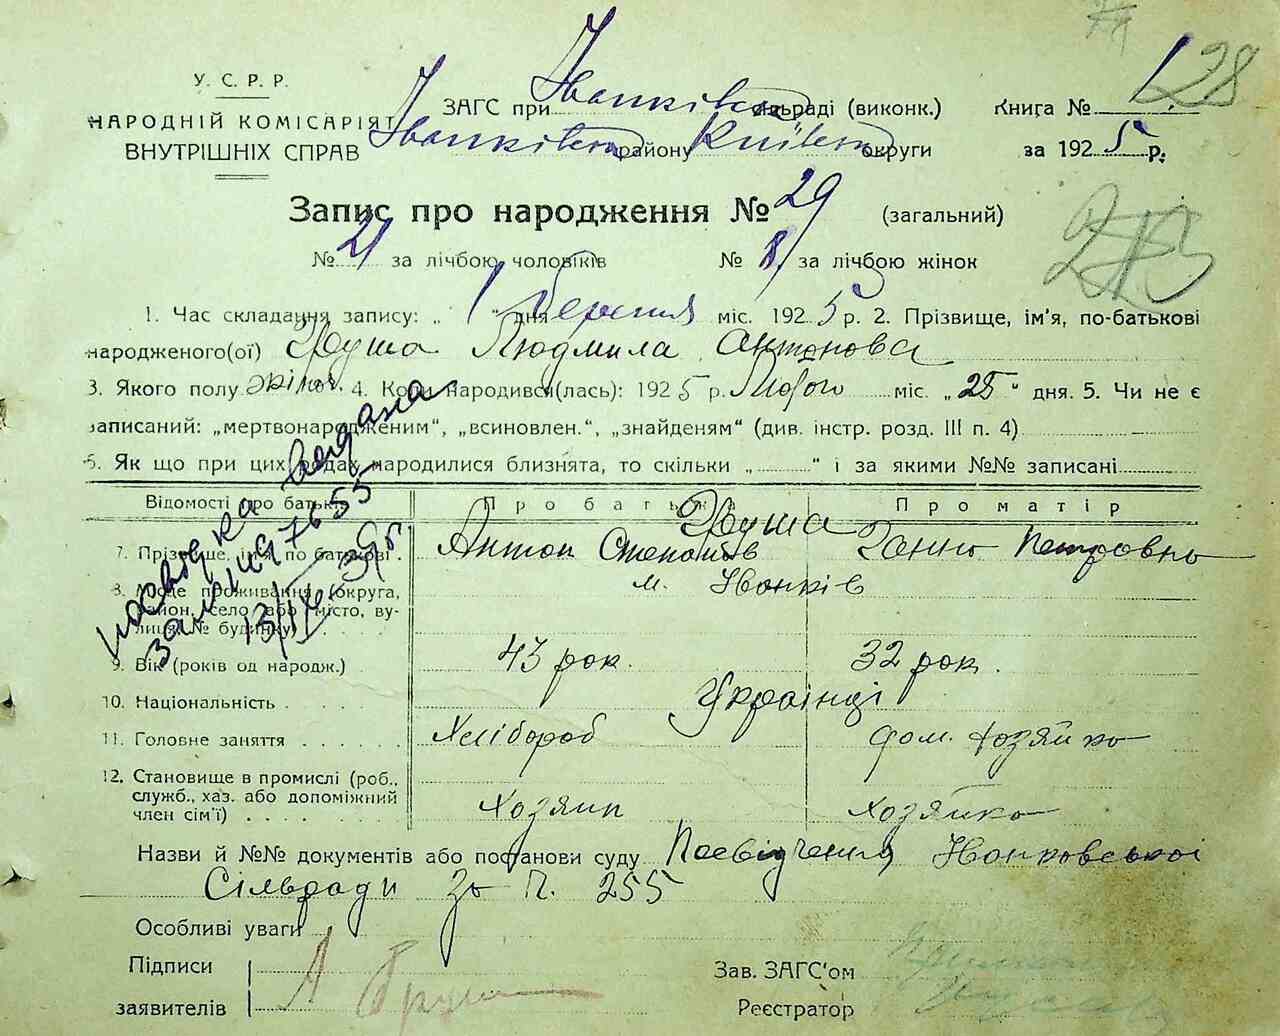 128
У. С. Р. Р.
НАРОДНІЙ КОМІСАРІЯТ
ВНУТРІШНІХ СПРАВ
ЗАГС при Іванківськ сільраді (виконк.)
Книга № 1
Іванківськ району Київськ округи
за 1925 р.
Запис про народження № 29 (загальний)
№ 21 за лічбою чоловіків № 8 за лічбою жінок
213
1. Час складання запису: „ 1 “ дня березня міс. 1925 р. 2. Прізвище, ім'я, по-батькові
народженого(ої) Груша Людмила Антонова
3. Якого полу жіноч. 4. Коли народився(лась): 1925 р. Лютого міс. „ 25 “ дня. 5. Чи не є
записаний: „мертвонародженим“, „всиновлен.“, „знайденям“ (див. інстр. розд. III п. 4)
6. Як що при цих родах народилися близнята, то скільки „ “ і за якими №№ записані
Відомості про батьків Про батька Про матір
Груша
7. Прізвище, ім'я, по батькові Антон Степанов Ганна Петровна
8. Місце проживання (округа, район, село або місто, вулиця, № будинку) м. Іванків
9. Вік (років од народж.) 43 рок. 32 рок.
10. Національність Українці
11. Головне заняття Хлібороб дом. хозяйка
12. Становище в промислі (роб., служб., хаз. або допоміжний член сім'ї) Хозяин хозяйка
посвідка видана
за № 497655
13/IX-39р
Назви й №№ документів або постанови суду Посвідчення Іванковської
Сільради за №. 255
Особливі уваги
Підписи
заявителів
А Груша
Зав. ЗАГС'ом
Реєстратор